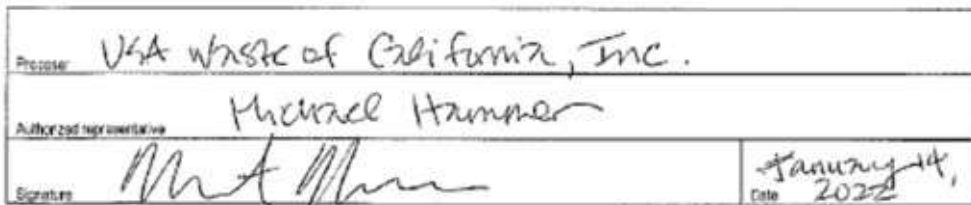 Proposer USA Waste of California, Inc.
Authorized representative Michael Hammer
Signature
Date January 14,
2022